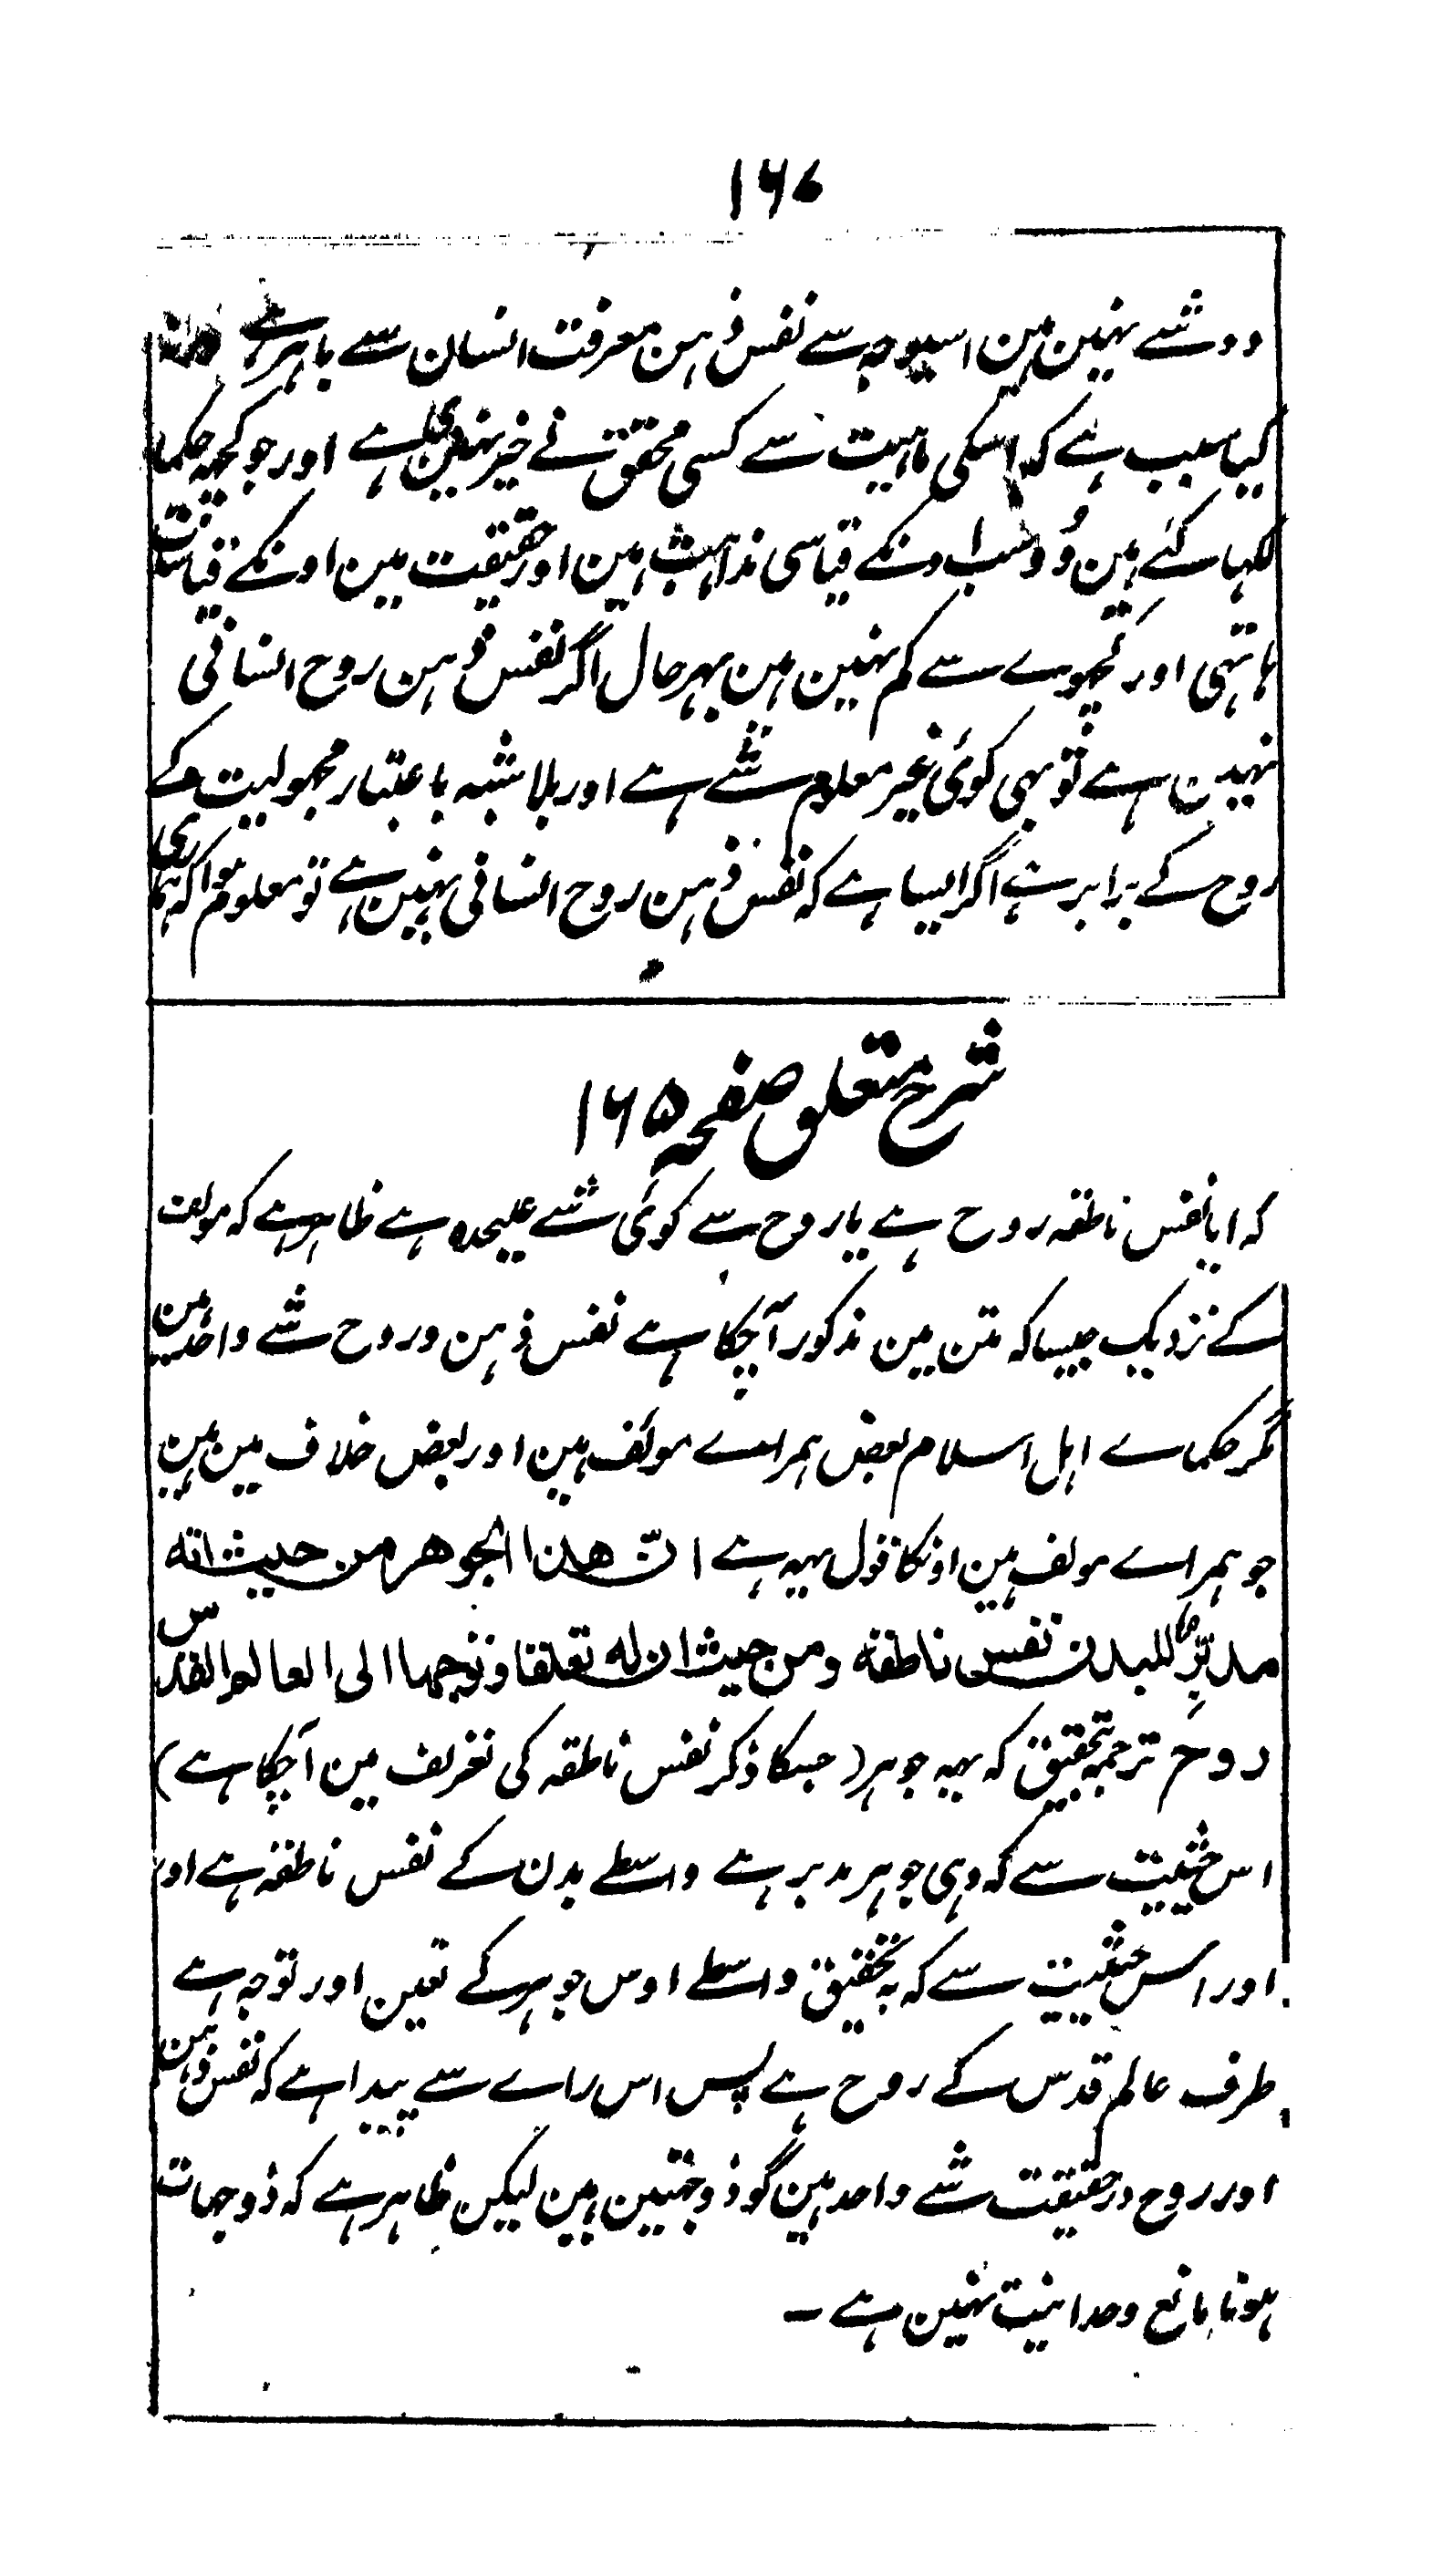 ۱۶۷
دو شے نہین ہین اسیوجہ سے نفس ذہن معرفت انسان سے باہر ہے
کیا سبب ہے کہ اسکی ماہیت سے کسی محقق نے خبر نہین دی ہے اور جو کچہہ حکما
لکہا کئے ہین وُہ سب اونکے قیاسی مذاہب ہین اور حقیقت مین اونکے قیاسات
ہاتہی اور کچھوے سے کم نہین ہین بہرحال اگر نفس ذہن روح انسانی
نہین ہے تو بہی کوئی غیر معلوم شے ہے اور بلا شبہہ باعتبار مجہولیت کے
روح کے برابر ہے اگر ایسا ہے کہ نفس ذہن روح انسانی نہین ہے تو معلوم ہوا کہ ہماری
شرح متعلق صفحہ ۱۶۵
کہ ایا نفس ناطقہ روح ہے یا روح سے کوئی شے علیحدہ ہے ظاہر ہے کہ مولف
کے نزدیک جیسا کہ متن مین مذکور آچکا ہے نفس ذہن و روح شے واحد ہین
مگر حکماے اہل اسلام بعض ہمراے مولف ہین اور بعض خلاف مین ہین
جو ہمراے مولف ہین اونکا قول یہہ ہے انّ هذا الجوهر من حيث انه
مدبّر للبدن نفس ناطقة ومن حيث ان له تعلقا وتوجها الى العالم القدس
روح ترجمہ تحقیق کہ یہہ جوہر (جسکا ذکر نفس ناطقہ کی تعریف مین آچکا ہے)
اس حیثیت سے کہ وہی جوہر مدبر ہے واسطے بدن کے نفس ناطقہ ہے اور
اور اس حیثیت سے کہ بہ تحقیق واسطے اوس جوہر کے تعین اور توجہ ہے
طرف عالم قدس کے روح ہے پس اس راے سے پیدا ہے کہ نفس ذہن
اور روح درحقیقت شے واحد ہین گو ذو جہتین ہین لیکن ظاہر ہے کہ ذو جہات
ہونا مانع وحدانیت نہین ہے ۔